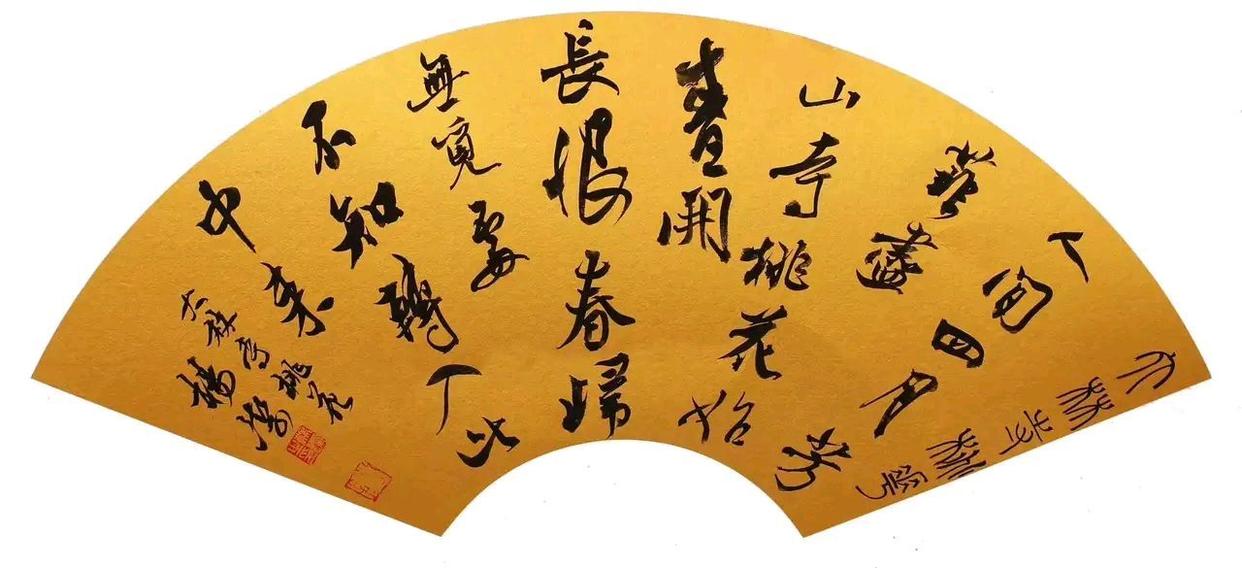 大林寺桃花
人間四月芳
菲盡
山寺桃花始
盛開
長恨春歸
無覓處
不知轉入此
中来
大林寺桃花
楊